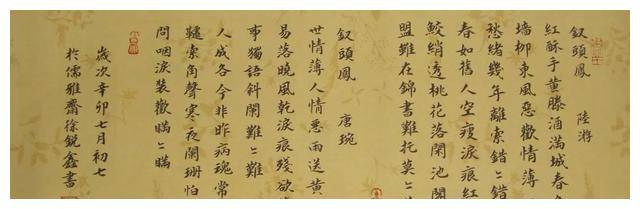 釵頭鳳 陸游
紅酥手黄滕酒滿城春
墻柳東風惡歡情薄
愁緒幾年離索錯〻錯
春如舊人空瘦淚痕紅
鮫綃透桃花落閑池閣
盟雖在錦書難托莫〻
釵頭鳳 唐琬
世情薄人情惡雨送黄
易落曉風乾淚痕殘欲
事獨語斜闌難〻難
人成各今非昨病魂常
韆索角聲寒夜闌珊怕
問咽淚裝歡瞞〻瞞
歲次辛卯七月初七
於儒雅齋徐銳鑫書